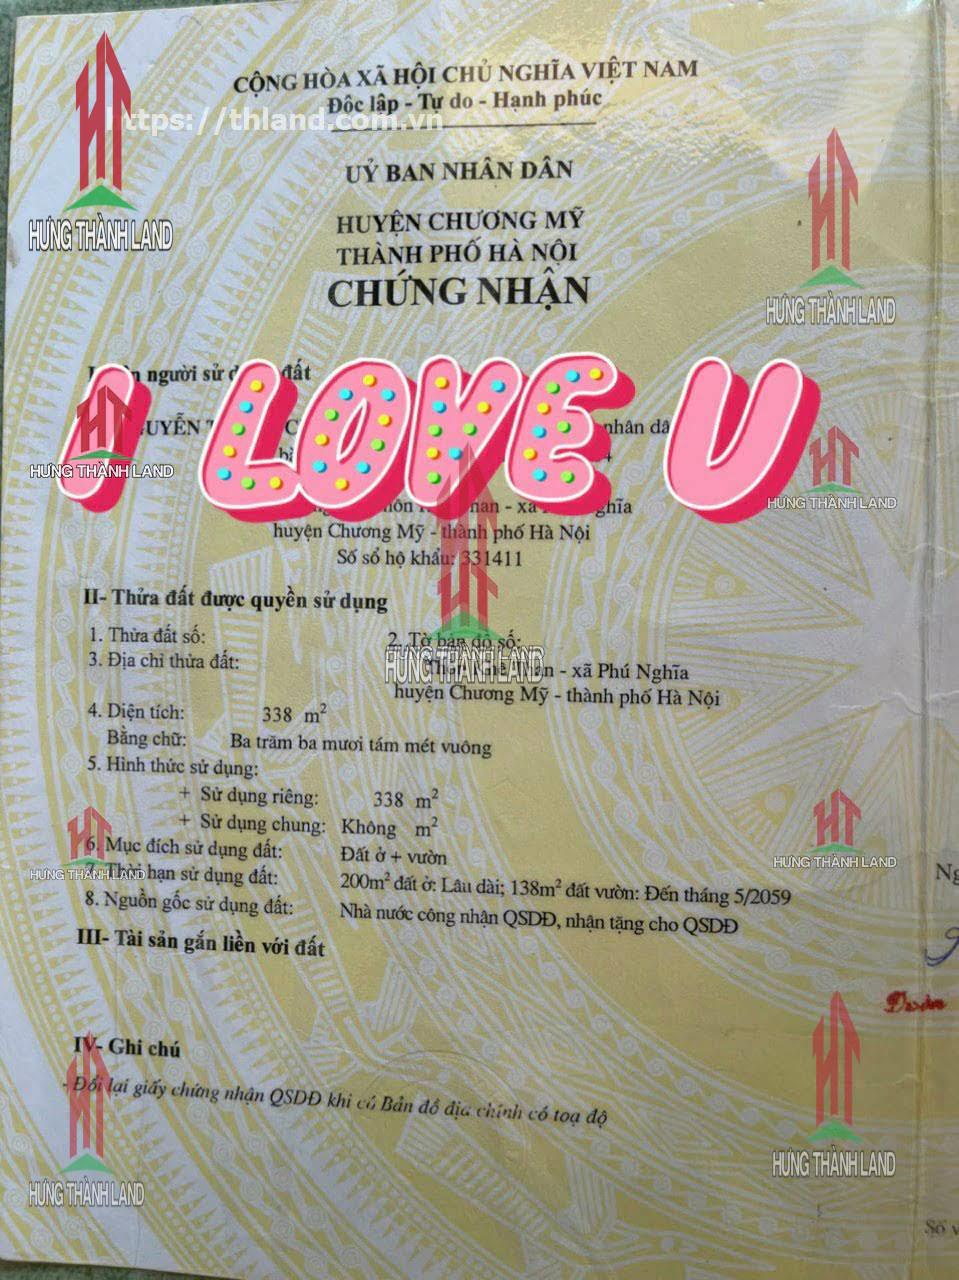 CỘNG HÒA XÃ HỘI CHỦ NGHĨA VIỆT NAM
Độc lập - Tự do - Hạnh phúc
https://thland.com.vn
UỶ BAN NHÂN DÂN
HUYỆN CHƯƠNG MỸ
THÀNH PHỐ HÀ NỘI
CHỨNG NHẬN
HƯNG THÀNH LAND
HƯNG THÀNH LAND
người sử đất
I LOVE U
nhân
HƯNG THÀNH LAND
HƯNG THÀNH LAND
huyện Chương Mỹ - thành phố Hà Nội
Số sổ hộ khẩu: 331411
II- Thửa đất được quyền sử dụng
1. Thửa đất số: 2. Tờ bản đồ số:
3. Địa chỉ thửa đất: - xã Phú Nghĩa
HƯNG THÀNH LAND
huyện Chương Mỹ - thành phố Hà Nội
4. Diện tích: 338 m²
Bằng chữ: Ba trăm ba mươi tám mét vuông
5. Hình thức sử dụng:
+ Sử dụng riêng: 338 m²
+ Sử dụng chung: Không m²
6. Mục đích sử dụng đất: Đất ở + vườn
HƯNG THÀNH LAND
HƯNG THÀNH LAND
7. Thời hạn sử dụng đất: 200m² đất ở: Lâu dài; 138m² đất vườn: Đến tháng 5/2059
8. Nguồn gốc sử dụng đất: Nhà nước công nhận QSDĐ, nhận tặng cho QSDĐ
III- Tài sản gắn liền với đất
Đoàn
IV- Ghi chú
- Đổi lại giấy chứng nhận QSDĐ khi có Bản đồ địa chính có toạ độ
HƯNG THÀNH LAND
HƯNG THÀNH LAND
Số